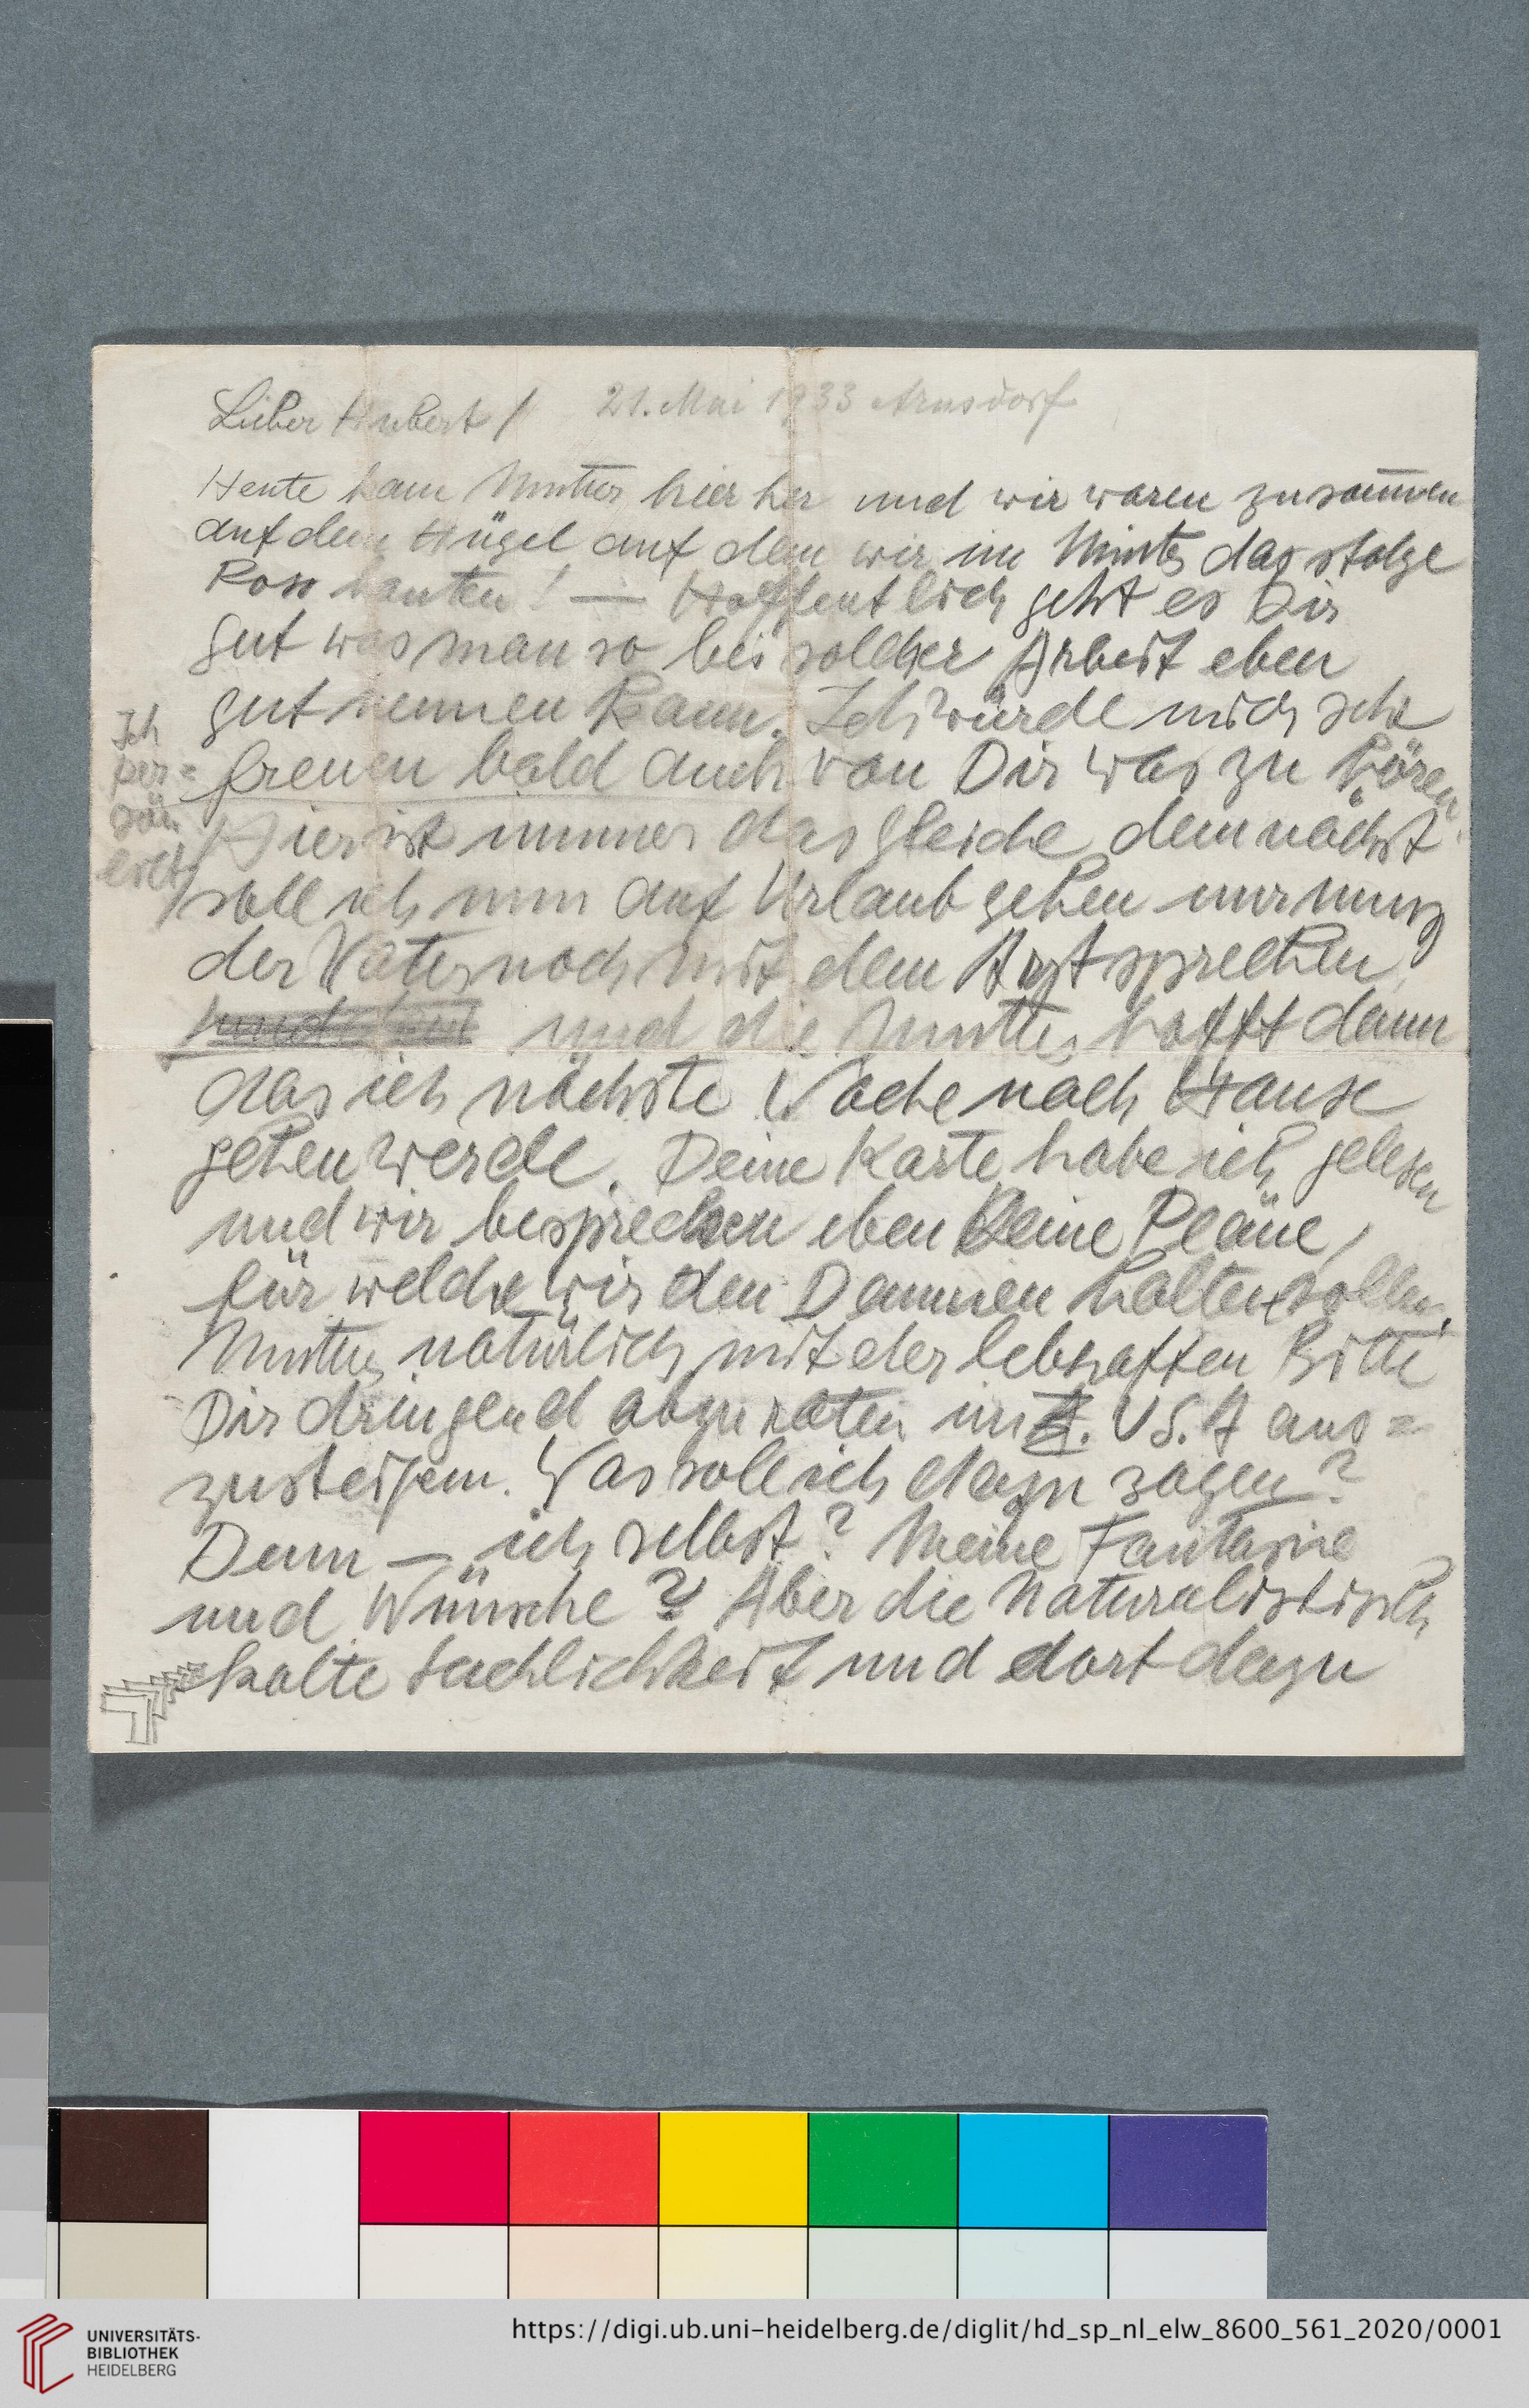 Lieber Hubert! 21. Mai 1933 Arnsdorf
Heute kam Mutter hierher und wir waren zusam̄en
auf dem Hügel auf dem wir im Winter das stolze
Ross bauten! — Hoffentlich geht es Dir
gut was man so bei solcher Arbeit eben
gut nennen kann. Ich würde mich sehr
freuen bald auch von Dir was zu hören.
Hier ist immer das gleiche demnächst
Ich
per=
sön
lich
soll ich nun auf Urlaub gehen nur muss
der Vater noch mit dem Arzt sprechen,
und die Mutter hofft dann
das ich nächste Woche nach Hause
gehen werde. Deine Karte habe ich gelesen
und wir besprechen eben Deine Pläne,
für welche wir den Daumen halten sollen.
Mutter natürlich mit der lebhaften Bitte
Dir dringend abzuraten in U S. A aus=
zusteigen. Was soll ich dazu sagen?
Denn — ich selbst? Meine Fantasie
und Wünsche? Aber die naturalistisch
kalte Sachlichkeit und dort dazu
UNIVERSITÄTS-
BIBLIOTHEK
HEIDELBERG
https://digi.ub.uni-heidelberg.de/diglit/hd_sp_nl_elw_8600_561_2020/0001